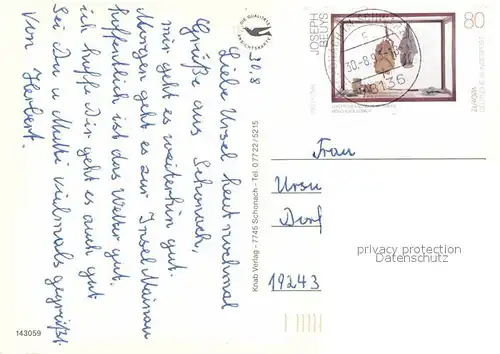 30.8
Liebe Ursel heut nochmal
Grüße aus Schonach,
mir geht es weiterhin gut.
Morgen geht es zur Insel Mainau
hoffentlich ist das Wetter gut.
ich hoffe Dir geht es auch gut
Sei Du u Mutti vielmals gegrüßt.
Von Herbert.
143059
DIE QUALITÄTS
ANSICHTSKARTE
Knab Verlag - 7745 Schonach - Tel. 07722/5215
JOSEPH
BEUYS
80
EUROPA
DEUTSCHE BUNDESPOST
30.-8.93
78136
Frau
Ursu
Dorf
19243
privacy protection
Datenschutz